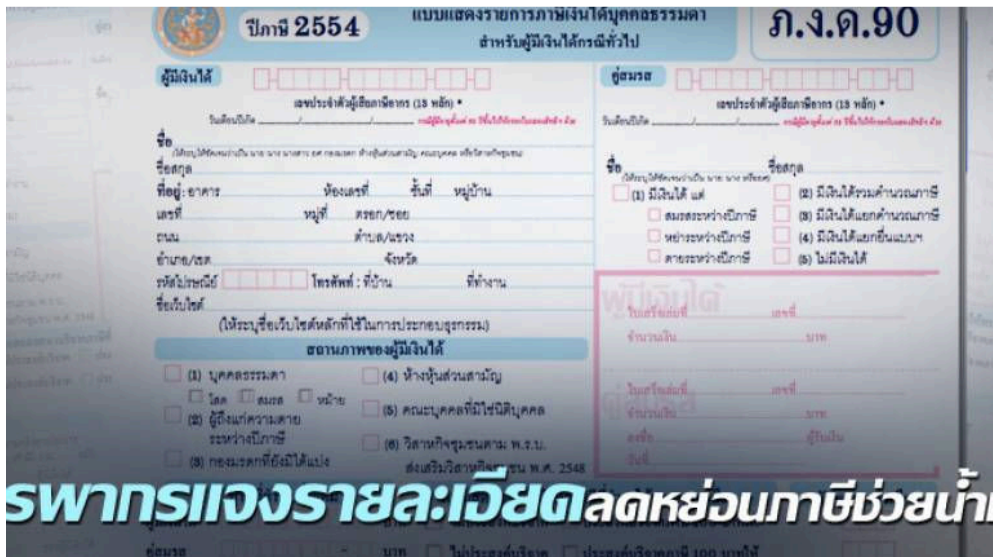 ปีภาษี 2554
แบบแสดงรายการภาษีเงินได้บุคคลธรรมดา
สำหรับผู้มีเงินได้กรณีทั่วไป
ภ.ง.ด.90
ผู้มีเงินได้
เลขประจำตัวผู้เสียภาษีอากร (13 หลัก) •
วันเดือนปีเกิด
ชื่อ
(ให้ระบุให้ชัดเจนว่าเป็น นาย นาง นางสาว ยศ กองมรดก ห้างหุ้นส่วนสามัญ คณะบุคคล หรือวิสาหกิจชุมชน)
ชื่อสกุล
ที่อยู่ : อาคาร ห้องเลขที่ ชั้นที่ หมู่บ้าน
เลขที่ หมู่ที่ ตรอก/ซอย
ถนน ตำบล/แขวง
อำเภอ/เขต จังหวัด
รหัสไปรษณีย์ โทรศัพท์ : ที่บ้าน ที่ทำงาน
ชื่อเว็บไซต์
(ให้ระบุชื่อเว็บไซต์หลักที่ใช้ในการประกอบธุรกรรม)
สถานภาพของผู้มีเงินได้
(1) บุคคลธรรมดา
โสด สมรส หม้าย
(2) ผู้ถึงแก่ความตาย
ระหว่างปีภาษี
(3) กองมรดกที่ยังมิได้แบ่ง
(4) ห้างหุ้นส่วนสามัญ
(5) คณะบุคคลที่มิใช่นิติบุคคล
(6) วิสาหกิจชุมชนตาม พ.ร.บ.
ส่งเสริมวิสาหกิจชุมชน พ.ศ. 2548
คู่สมรส
เลขประจำตัวผู้เสียภาษีอากร (13 หลัก) •
วันเดือนปีเกิด
ชื่อ ชื่อสกุล
(1) มีเงินได้ แต่
สมรสระหว่างปีภาษี
หย่าระหว่างปีภาษี
ตายระหว่างปีภาษี
(2) มีเงินได้รวมคำนวณภาษี
(3) มีเงินได้แยกคำนวณภาษี
(4) มีเงินได้แยกยื่นแบบฯ
(5) ไม่มีเงินได้
ผู้มีเงินได้
ใบเสร็จเล่มที่ เลขที่
จำนวนเงิน บาท
คู่สมรส
ใบเสร็จเล่มที่ เลขที่
จำนวนเงิน บาท
ลงชื่อ ผู้รับเงิน
วันที่
รพากรแจงรายละเอียดลดหย่อนภาษีช่วยน้ำ
คู่สมรส บาท ไม่ประสงค์บริจาค ประสงค์บริจาคภาษี 100 บาทให้